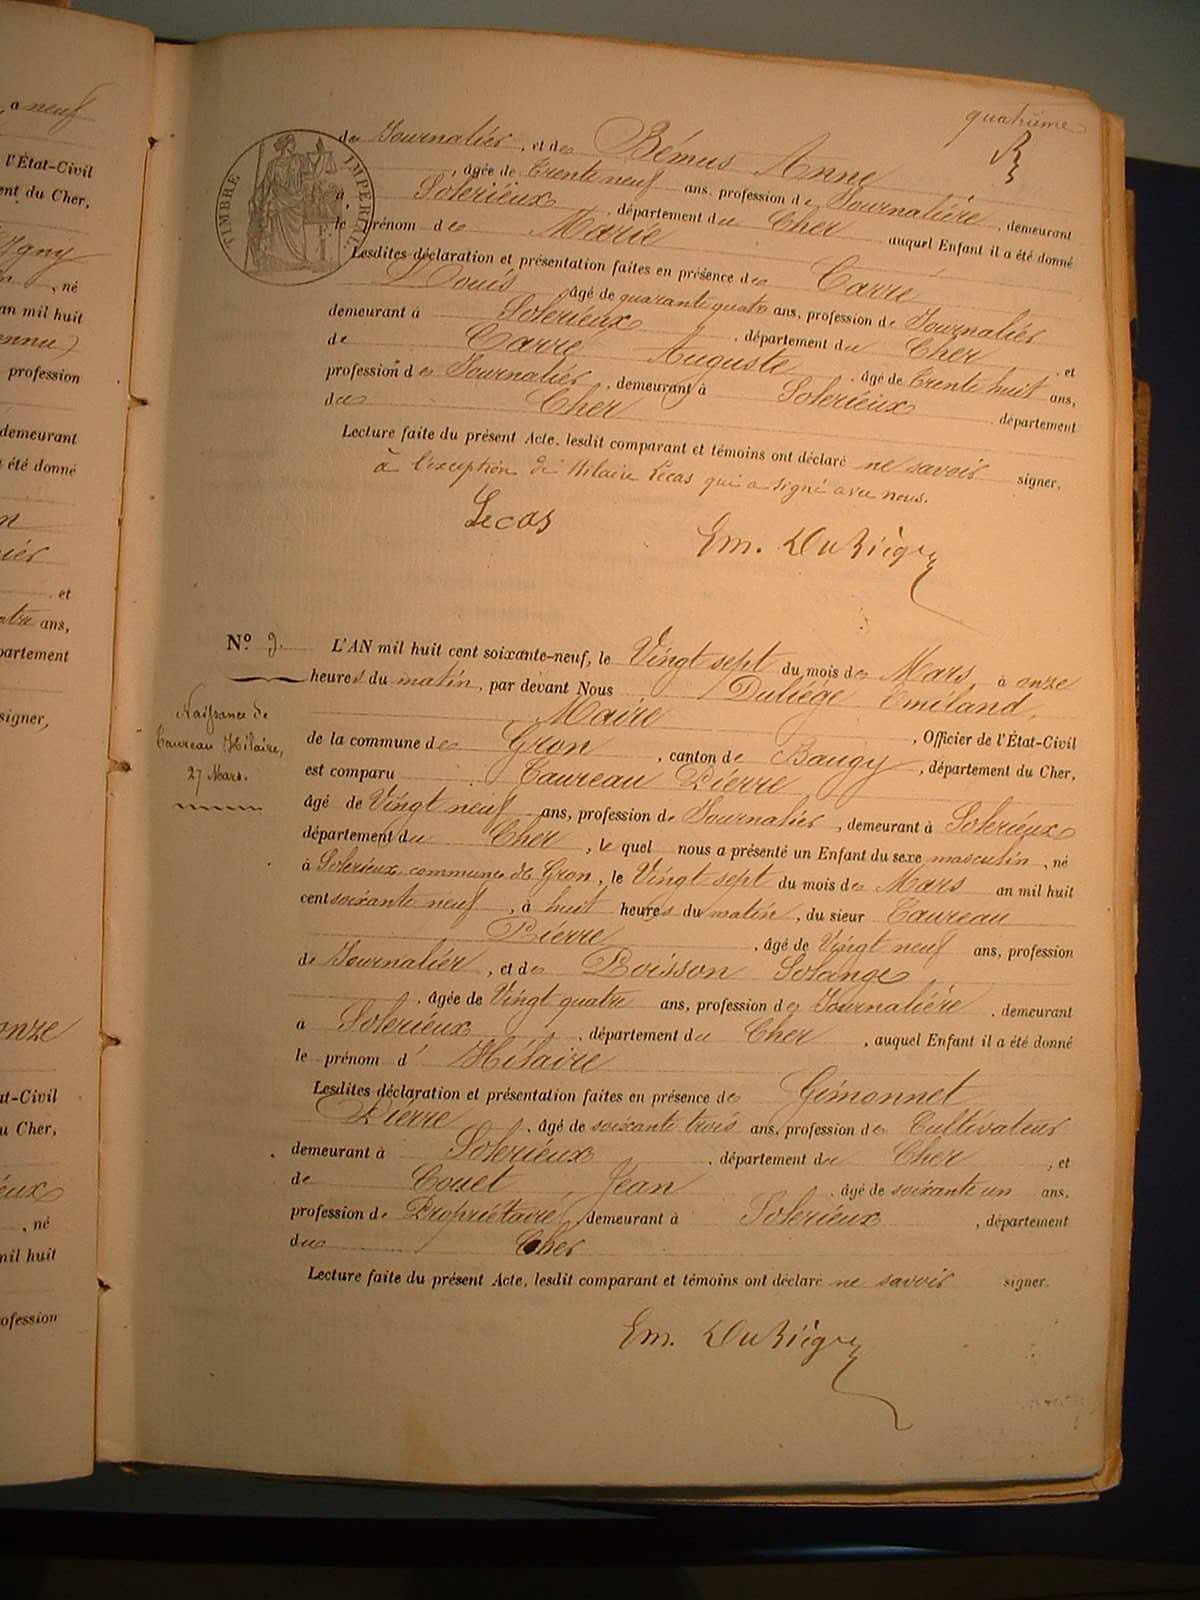 quatrième
TIMBRE IMPÉRIAL
de Journalier, et de Bémus Anne
, âgée de Trente neuf ans, profession de Journalière, demeurant
à Solerieux, département du Cher auquel Enfant il a été donné
le prénom de Marie
Lesdites déclaration et présentation faites en présence de Carré
Louis âgé de quarante quatre ans, profession de Journalier
demeurant à Solerieux, département du Cher et
de Carré Auguste, âgé de Trente huit ans,
profession de Journalier, demeurant à Solerieux, département
du Cher
Lecture faite du présent Acte, lesdit comparant et témoins ont déclaré ne savoir signer.
à l'exception de Hilaire Lecas qui a signé avec nous.
Lecas
Em. Duliège
N° 9. L'AN mil huit cent soixante-neuf, le Vingt sept du mois de Mars à onze
heures du matin, par devant Nous Duliége Emiland,
Maire, Officier de l'État-Civil
de la commune de Gron, canton de Baugy, département du Cher,
est comparu Taureau Pierre
âgé de Vingt neuf ans, profession de Journalier, demeurant à Solerieux
département du Cher, le quel nous a présenté un Enfant du sexe masculin, né
à Solerieux commune de Gron, le Vingt sept du mois de Mars an mil huit
cent soixante neuf, à huit heures du matin, du sieur Taureau
Pierre, âgé de Vingt neuf ans, profession
de Journalier, et de Poisson Solange
, âgée de Vingt quatre ans, profession de Journalière, demeurant
à Solerieux, département du Cher, auquel Enfant il a été donné
le prénom d' Hilaire
Lesdites déclaration et présentation faites en présence de Gimonnet
Pierre, âgé de soixante trois ans, profession de Cultivateur
demeurant à Solerieux, département du Cher, et
de Couet Jean, âgé de soixante un ans,
profession de Propriétaire, demeurant à Solerieux, département
du Cher
Lecture faite du présent Acte, lesdit comparant et témoins ont déclaré ne savoir signer.
Em. Duliège
Naissance de
Taureau Hilaire,
27 Mars.
, a neuf
l'État-Civil
ent du Cher,
Igny
, né
an mil huit
profession
demeurant
été donné
et
ans,
partement
signer,
onze
at-Civil
u Cher,
eux
, né
mil huit
ofession